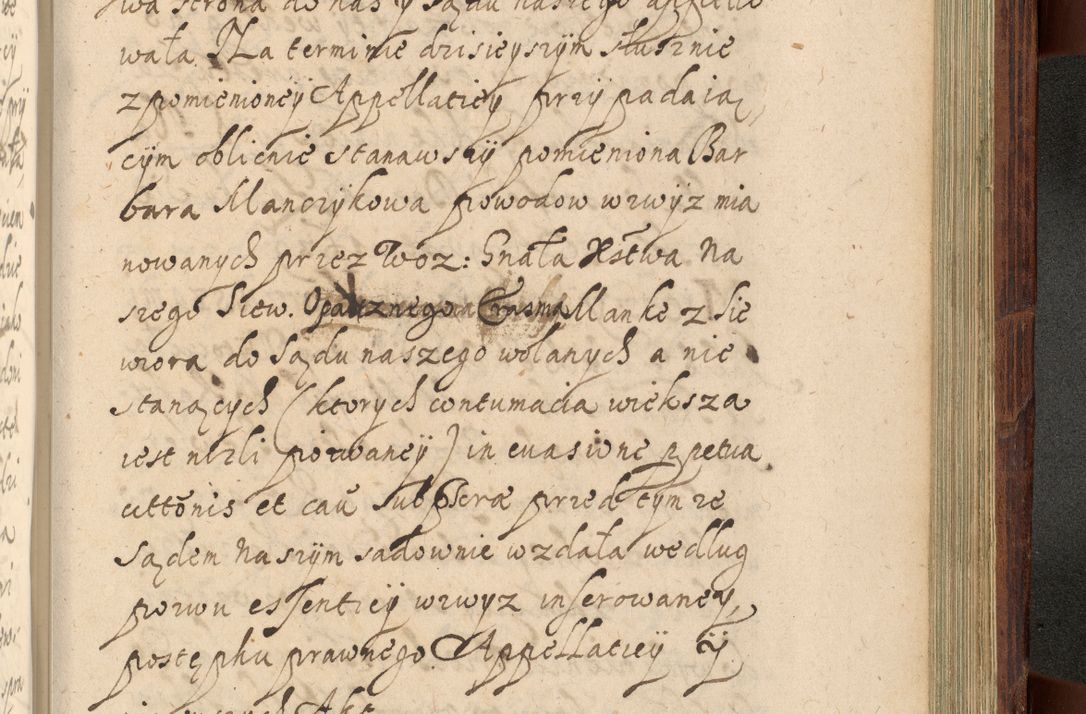 wa strona do nas y sądu naszego appello
wała Na terminie dzisieyszÿm słusznie
z pomienioneÿ Appellatieÿ przÿpadaią
cÿm oblicnie stanawszÿ pomieniona Bar
bara Manczÿkowa powodow wzwÿz mia
nowanÿch przez Woz: Gnała Xstwa Na
szego Siew. Opatrznego Erasma Manke z Sie
wiora do Sądu naszego wołanÿch a nie
stanącÿch (ktorÿch contumacia większa
iest niżli pozwaneÿ) in euasione ppetua
attonis et caū sub pseræ przed tÿmże
Sądem naszÿm sadownie wzdała według
pozwu essentieÿ wzwyz inserowaneÿ
postęphu prawnego Appellatieÿ tÿ
Akt